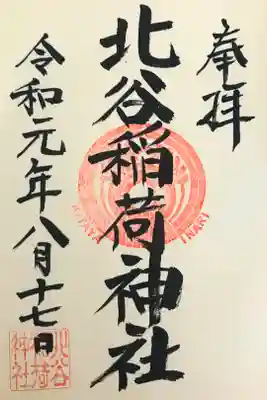 奉拝
北谷稲荷神社
令和元年八月十七日
KITAYA INARI
北谷
稲荷
神社